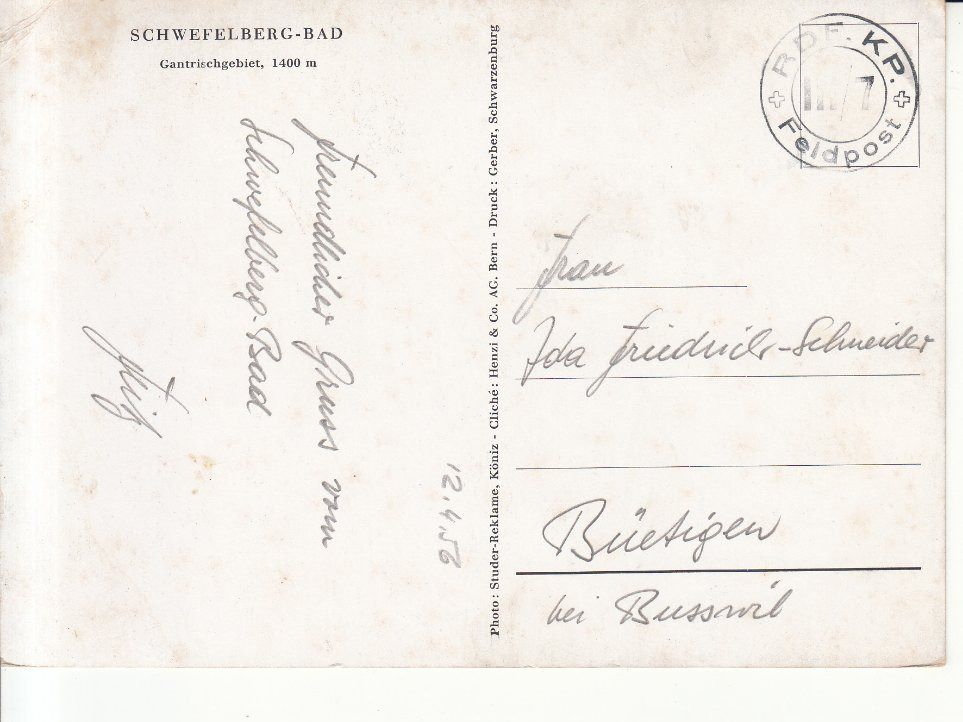 SCHWEFELBERG-BAD
Gantrischgebiet, 1400 m
freundlicher Gruss vom
Schwefelberg-Bad
12.4.56
Photo: Studer-Reklame, Köniz - Cliché: Henzi & Co. AG. Bern - Druck: Gerber, Schwarzenburg
RDF. KP.
III/7
Feldpost
Frau
Ida Friedrich-Schneider
Büetigen
bei Busswil